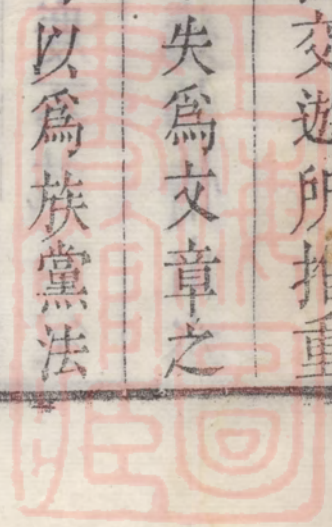 交遊所推重
失爲文章之
以爲族黨法